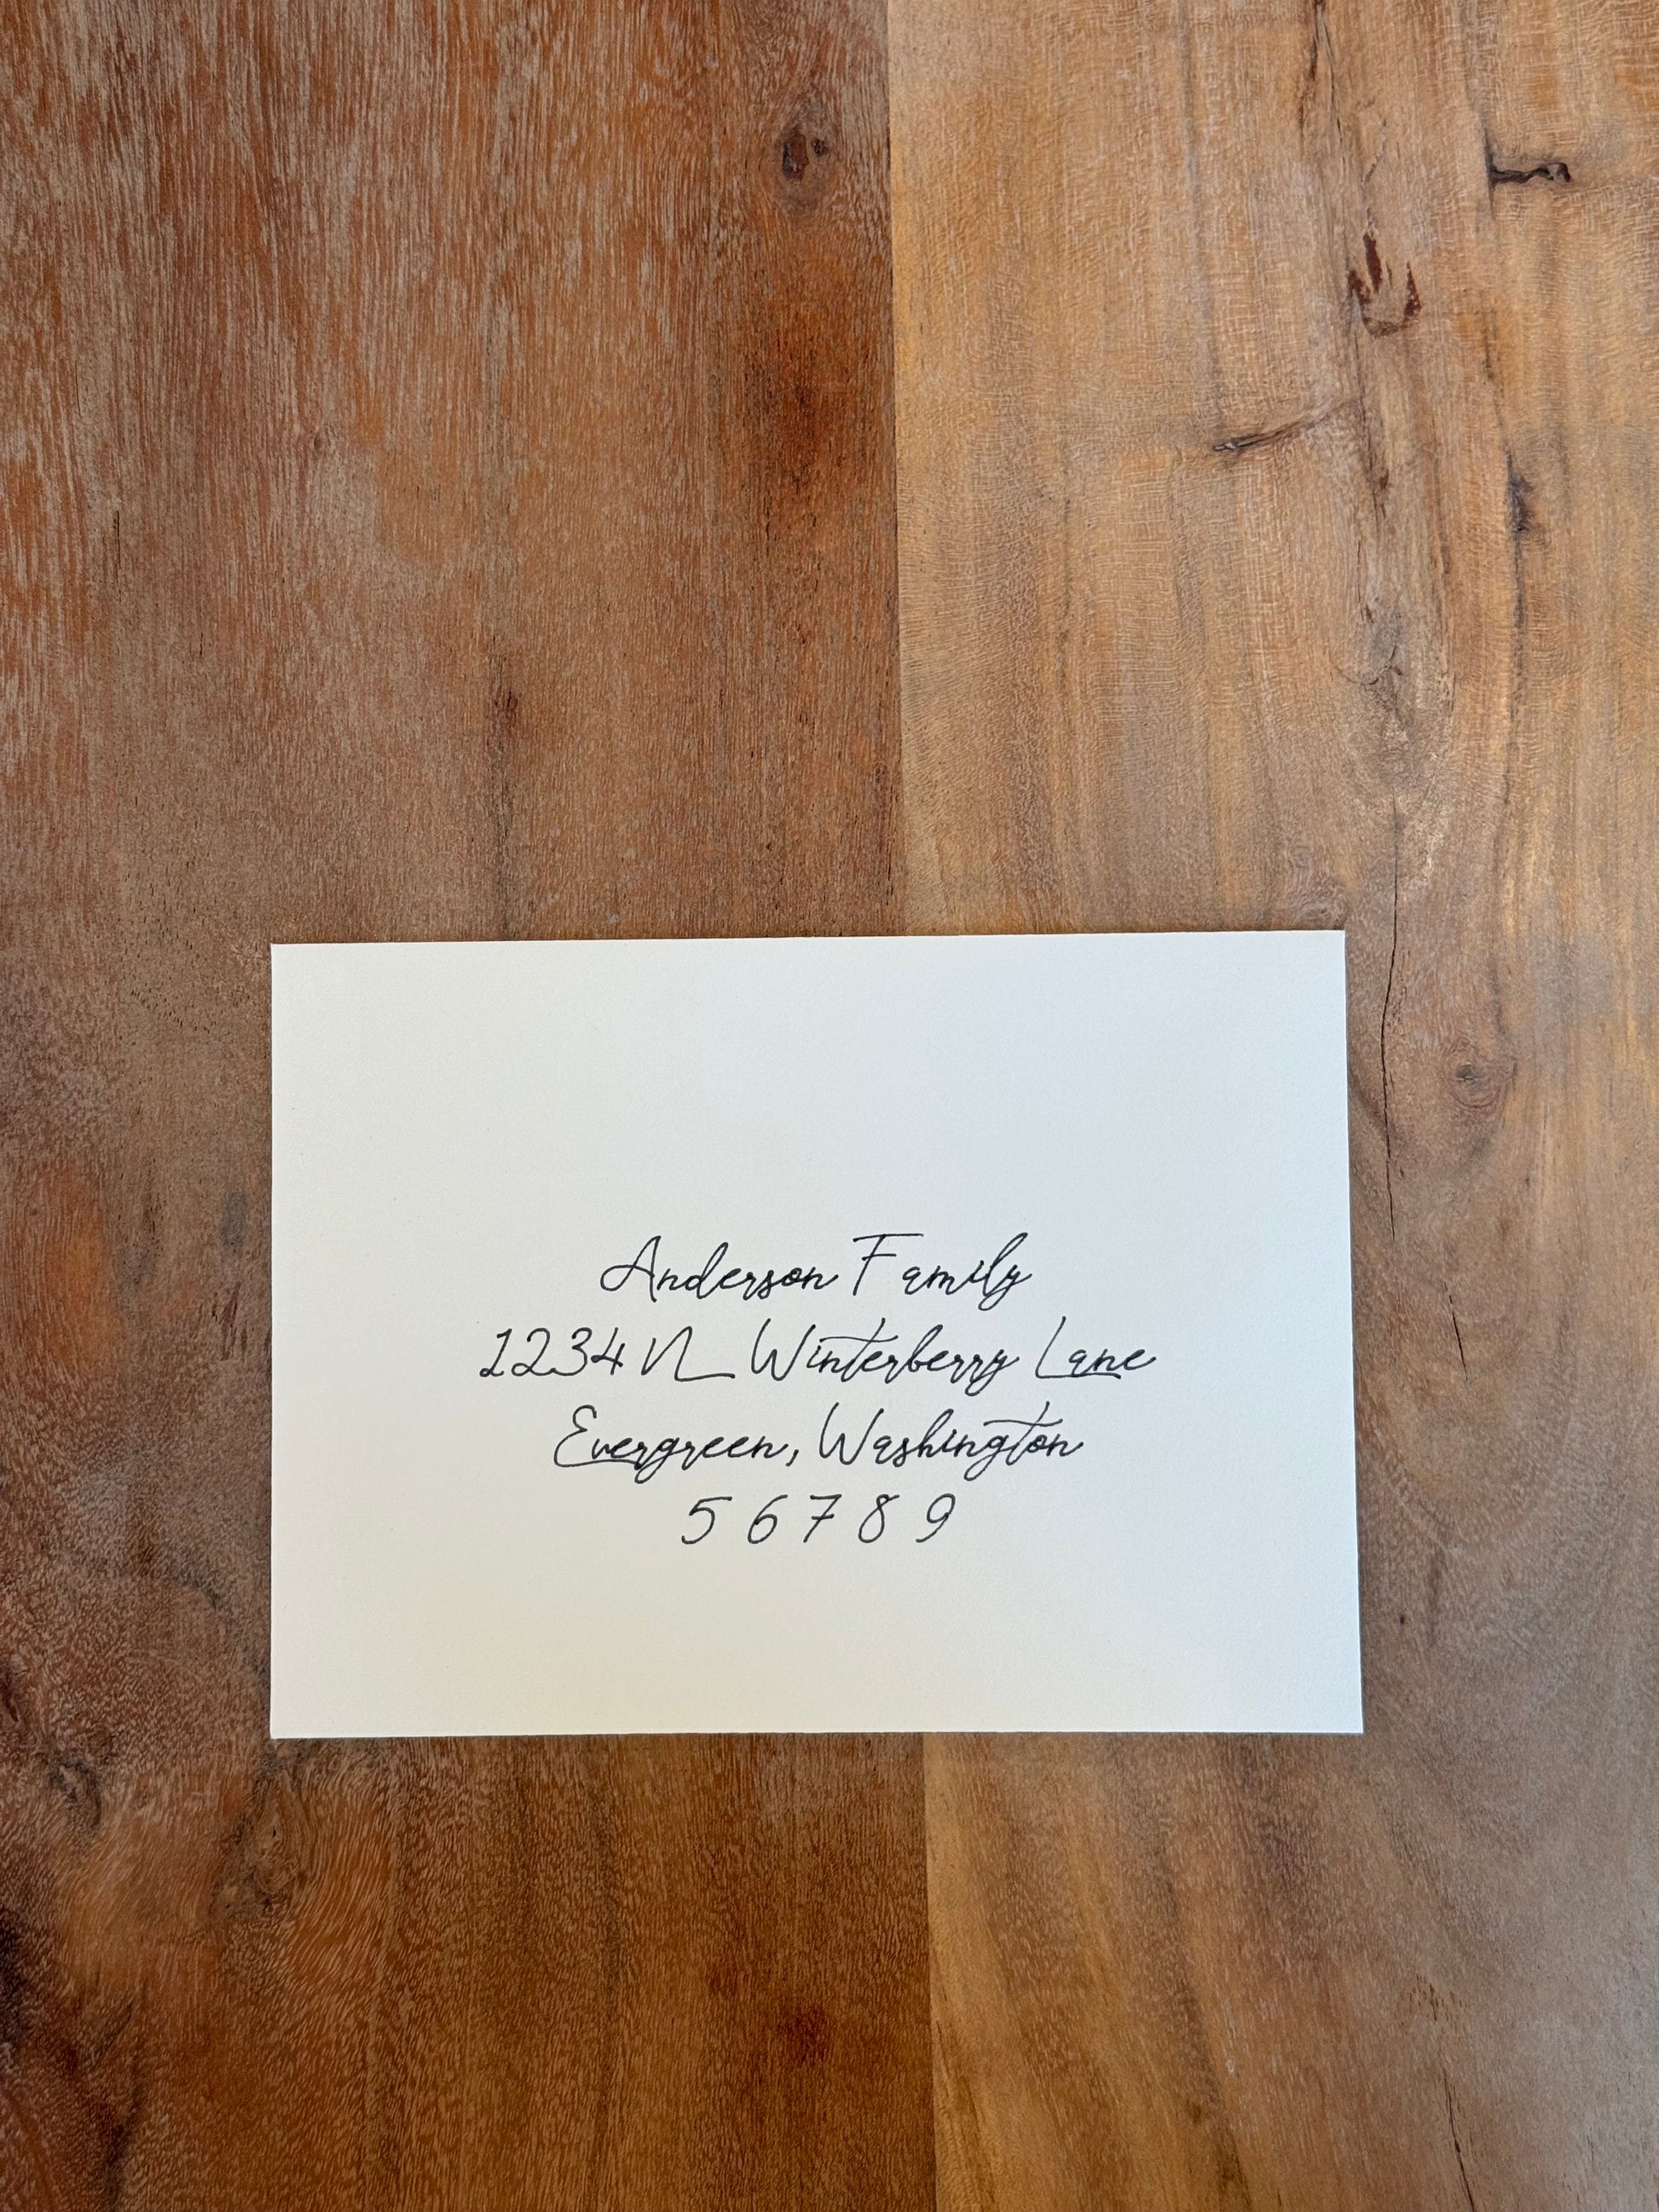 Anderson Family
1234 N Winterberry Lane
Evergreen, Washington
5 6 7 8 9